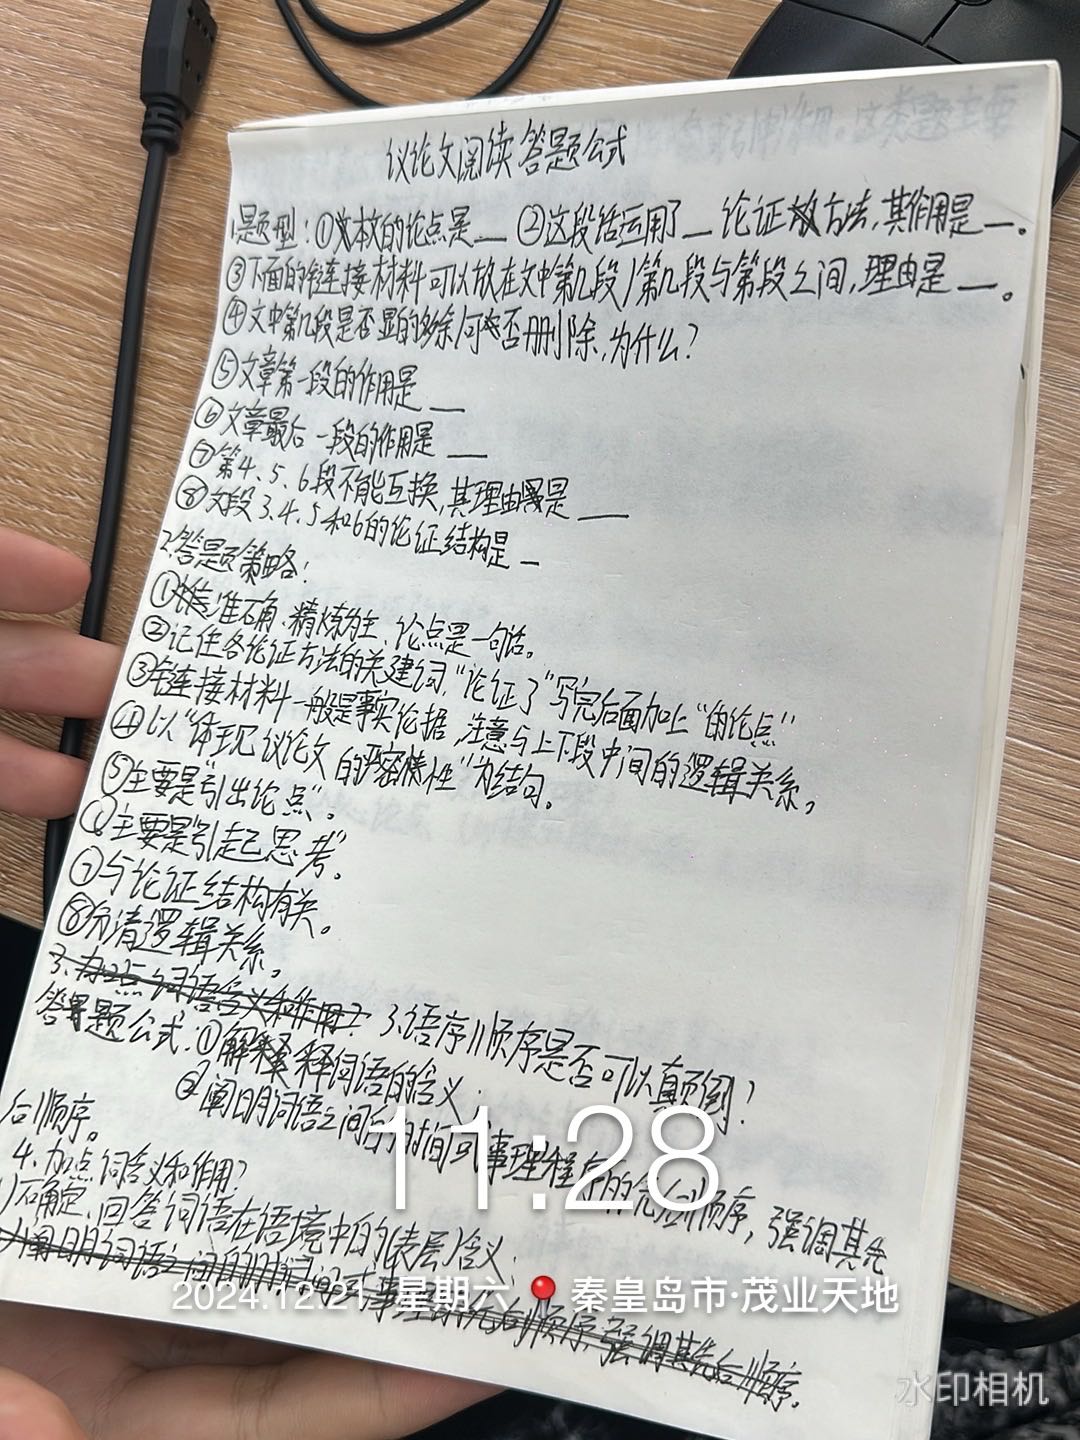 议论文阅读答题公式
1.题型:①本文的论点是__ ②这段话运用了__论证方法,其作用是__。
③下面的链接材料可以放在文中第几段/第几段与第段之间,理由是__。
④文中第几段是否显的多余/可否删除,为什么?
⑤文章第一段的作用是__
⑥文章最后一段的作用是__
⑦第4、5、6段不能互换,其理由是__
⑧文段3.4.5和6的论证结构是_
2.答题策略:
①准确、精炼为主、论点是一句话。
②记住各论证方法的关建词,"论证了"写完后面加上"的论点"
③链接材料一般是事实论据,注意与上下段中间的逻辑关系,
④以"体现议论文的严密性"为结句。
⑤主要是"引出论点"。
⑥主要是"引起思考"。
⑦与论证结构有关。
⑧分清逻辑关系。
3、加点词语含义和作用? 3.语序顺序是否可以颠倒?
答题公式:①解释词语的含义;
②阐明词语之间的时间或事理程序的先后顺序,强调其先
后顺序。
4、加点词含义和作用?
确定、回答词语在语境中的(表层)含义;
阐明词语之间的时间或事理的先后顺序,强调其先后顺序。
11:28
2024.12.21 星期六 秦皇岛市·茂业天地
水印相机